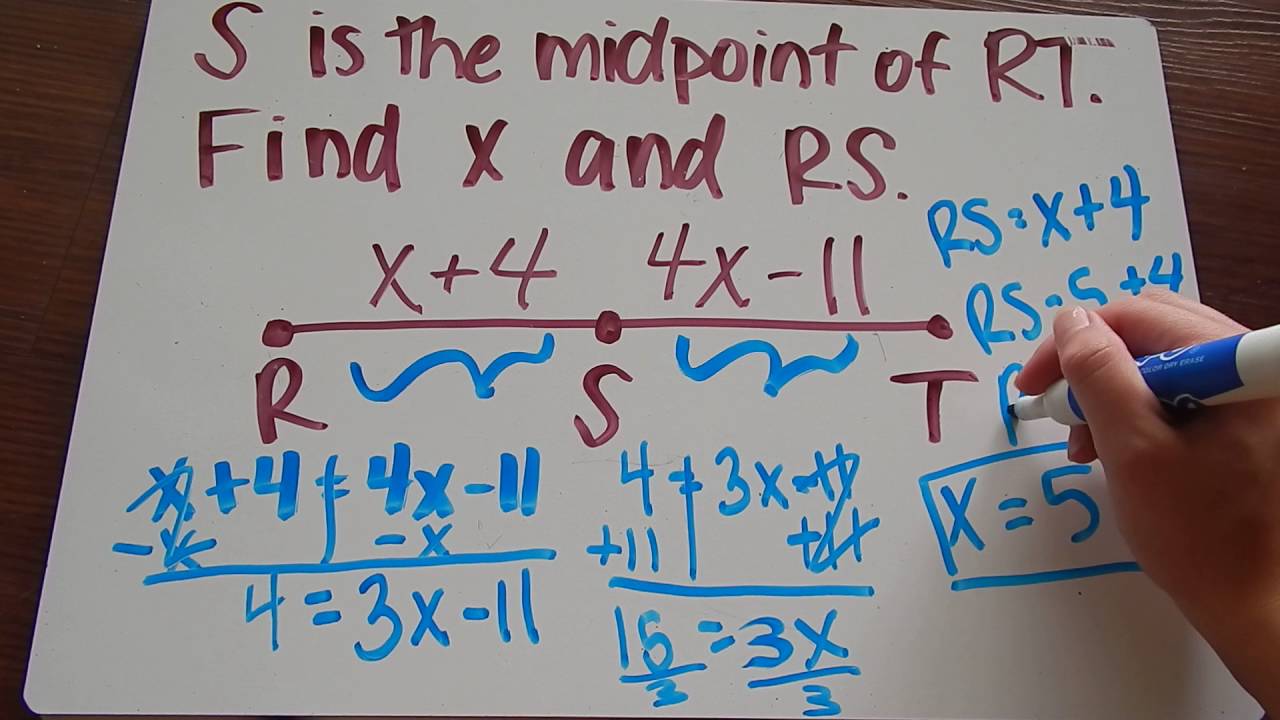 S is the midpoint of RT.
Find x and RS.
x+4 4x-11
R S T
RS=x+4
RS=5+4
x+4=4x-11
-x -x
4=3x-11
4=3x-11
+11 +11
15=3x
3 3
x=5
COLOR DRY ERASE